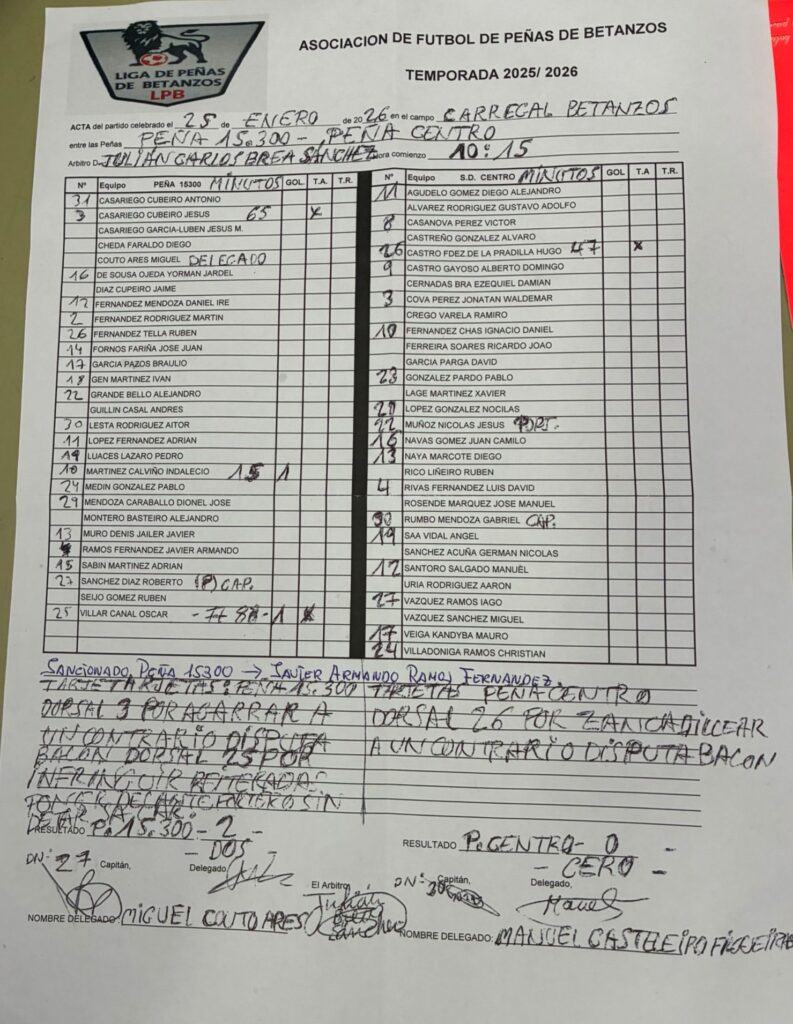 LIGA DE PEÑAS
DE BETANZOS
LPB
ASOCIACION DE FUTBOL DE PEÑAS DE BETANZOS
TEMPORADA 2025/ 2026
ACTA del partido celebrado el 25 de ENERO de 2026 en el campo CARREGAL BETANZOS
entre las Peñas PEÑA 15.300 - PEÑA CENTRO
Arbitro D. JULIÁN CARLOS BREA SÁNCHEZ ora comienzo 10:15
Nº Equipo PEÑA 15300 MÍNUTOS GOL T.A. T.R.
31 CASARIEGO CUBEIRO ANTONIO
3 CASARIEGO CUBEIRO JESUS 65 X
CASARIEGO GARCIA-LUBEN JESUS M.
CHEDA FARALDO DIEGO
COUTO ARES MIGUEL DELEGADO
16 DE SOUSA OJEDA YORMAN JARDEL
DIAZ CUPEIRO JAIME
12 FERNANDEZ MENDOZA DANIEL IRE
2 FERNANDEZ RODRIGUEZ MARTIN
26 FERNANDEZ TELLA RUBEN
14 FORNOS FARIÑA JOSE JUAN
17 GARCIA PAZOS BRAULIO
18 GEN MARTINEZ IVAN
22 GRANDE BELLO ALEJANDRO
GUILLIN CASAL ANDRES
30 LESTA RODRIGUEZ AITOR
11 LOPEZ FERNANDEZ ADRIAN
19 LUACES LAZARO PEDRO
10 MARTINEZ CALVIÑO INDALECIO 15 1
24 MEDIN GONZALEZ PABLO
29 MENDOZA CARABALLO DIONEL JOSE
MONTERO BASTEIRO ALEJANDRO
13 MURO DENIS JAILER JAVIER
RAMOS FERNANDEZ JAVIER ARMANDO
15 SABIN MARTINEZ ADRIAN
27 SANCHEZ DIAZ ROBERTO (8) CAP.
SEIJO GOMEZ RUBEN
25 VILLAR CANAL OSCAR - 7+ 88 - 1 X
Nº Equipo S.D. CENTRO MÍNUTOS GOL T.A T.R.
11 AGUDELO GOMEZ DIEGO ALEJANDRO
ALVAREZ RODRIGUEZ GUSTAVO ADOLFO
8 CASANOVA PEREZ VICTOR
CASTREÑO GONZALEZ ALVARO
26 CASTRO FDEZ DE LA PRADILLA HUGO 47 X
9 CASTRO GAYOSO ALBERTO DOMINGO
CERNADAS BRA EZEQUIEL DAMIAN
3 COVA PEREZ JONATAN WALDEMAR
CREGO VARELA RAMIRO
10 FERNANDEZ CHAS IGNACIO DANIEL
FERREIRA SOARES RICARDO JOAO
GARCIA PARGA DAVID
23 GONZALEZ PARDO PABLO
LAGE MARTINEZ XAVIER
LOPEZ GONZALEZ NOCILAS
22 MUÑOZ NICOLAS JESUS PORT.
16 NAVAS GOMEZ JUAN CAMILO
13 NAYA MARCOTE DIEGO
RICO LIÑEIRO RUBEN
4 RIVAS FERNANDEZ LUIS DAVID
ROSENDE MARQUEZ JOSE MANUEL
30 RUMBO MENDOZA GABRIEL CAP.
19 SAA VIDAL ANGEL
SANCHEZ ACUÑA GERMAN NICOLAS
12 SANTORO SALGADO MANUEL
URIA RODRIGUEZ AARON
27 VAZQUEZ RAMOS IAGO
VAZQUEZ SANCHEZ MIGUEL
17 VEIGA KANDYBA MAURO
24 VILLADONIGA RAMOS CHRISTIAN
SANCIONADO PEÑA 15300 → JAVIER ARMANDO RAMOS FERNANDEZ.
TARJETARJETAS: PEÑA 15.300
DORSAL 3 POR AGARRAR A
UN CONTRARIO DISPUTA
BACON DORSAL 25 POR
INFRINGUIR REITERADAS
PONER DELANTE PORTERO SIN
DEJAR
TARJETAS PEÑA CENTRO
DORSAL 26 POR ZANCADILLEAR
A UN CONTRARIO DISPUTA BACON
RESULTADO P. 15.300 - 2 -
- DOS -
RESULTADO P. CENTRO - 0 -
- CERO -
DN: 27 Capitán, Delegado El Arbitro DN: 30 Capitán, Delegado,
Julián
Brea
Sánchez
Manuel
NOMBRE DELEGADO: MIGUEL COUTO ARES
NOMBRE DELEGADO: MANUEL CASTELEIRO